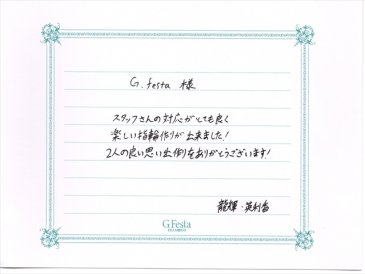 G.festa 様
スタッフさんの対応がとても良く
楽しい指輪作りが出来ました!
2人の良い思い出作りをありがとうございます!
龍輝・英利香
G.Festa